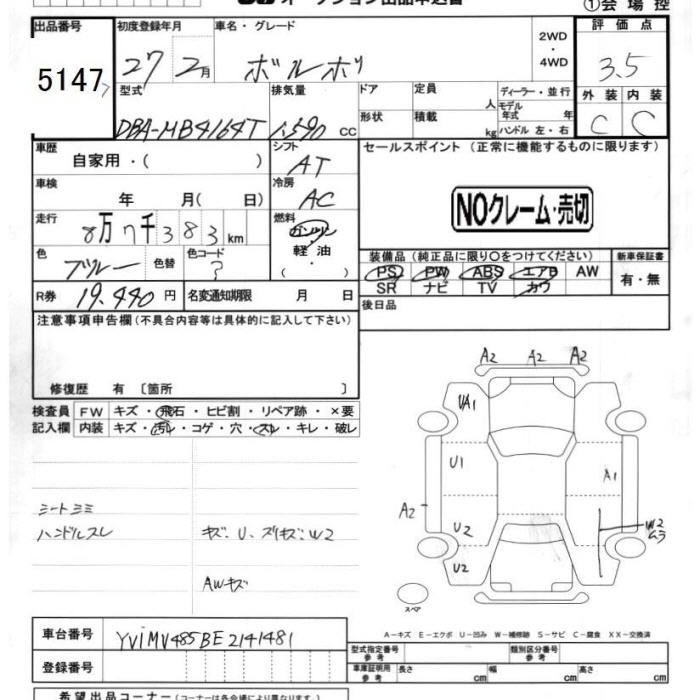 オークション出品申込書
①会場控
出品番号 初度登録年月 車名・グレード 評価点
5147 27 2月 ボルボ 2WD・4WD 3.5
型式 排気量 ドア 定員 人 ディーラー・並行 外装 内装
DBA-MB4164T 1,590 CC 形状 積載 kg モデル年式 年 ハンドル 左・右 C C
車歴 シフト セールスポイント (正常に機能するものに限ります)
自家用・( ) AT
車検 冷房
年 月( 日) AC NOクレーム・売切
走行 燃料
8万7千383km ガソリン・軽油
色 色替 色コード 装備品 (純正品に限り○をつけてください) 新車保証書
ブルー ? PS PW ABS エアB AW 有・無
SR ナビ TV カワ
R券 19,440円 名変通知期限 月 日 後日品
注意事項申告欄(不具合内容等は具体的に記入して下さい)
修復歴 有 〔箇所 〕
検査員 FW キズ・飛石・ヒビ割・リペア跡・×要
記入欄 内装 キズ・汚レ・コゲ・穴・スレ・キレ・破レ
A2 A2 A2
UA1
U1 A1
A2
U2 W2
ムラ
U2
シートシミ
ハンドルスレ キズ・U・スリキズ・W2
AWキズ
スペア
A-キズ E-エクボ U-凹み W-補修跡 S-サビ C-腐食 XX-交換済
車台番号 YV1MV485BE2141481
登録番号
型式指定番号 参考 類別区分番号 参考
車庫証明用 参考 長さ cm 幅 cm 高さ cm
希望出品コーナー (コーナーは各会場により異なります。)